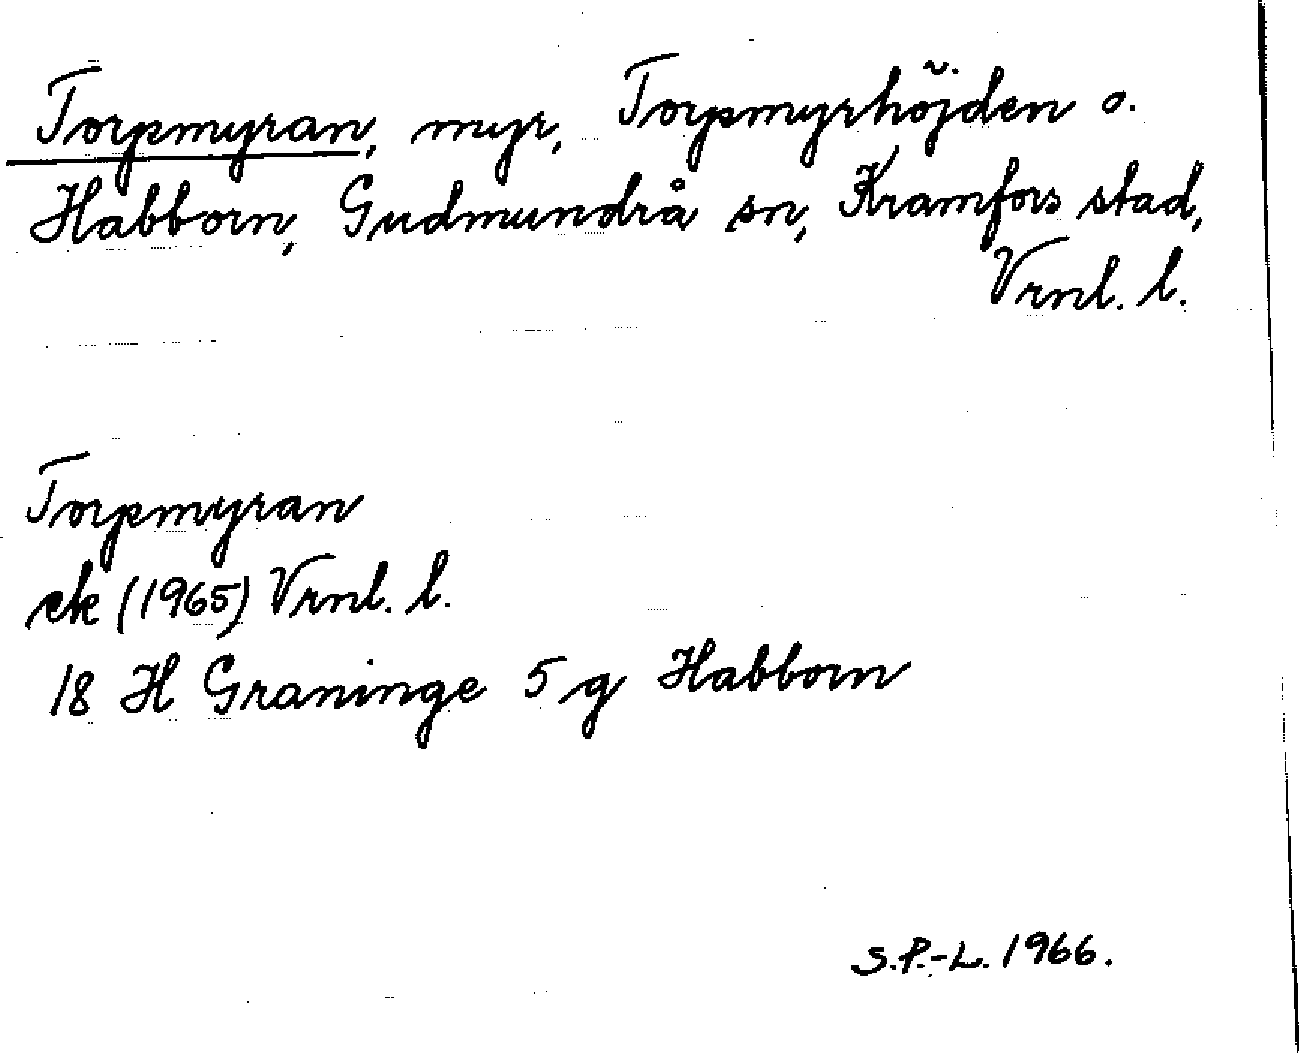 Torpmyran, myr, Torpmyrhöjden o.
Habborn, Gudmundrå sn, Kramfors stad,
Vrnl. l.
Torpmyran
ek (1965) Vrnl. l.
18 H Graninge 5 g Habborn
S.P.-L. 1966.